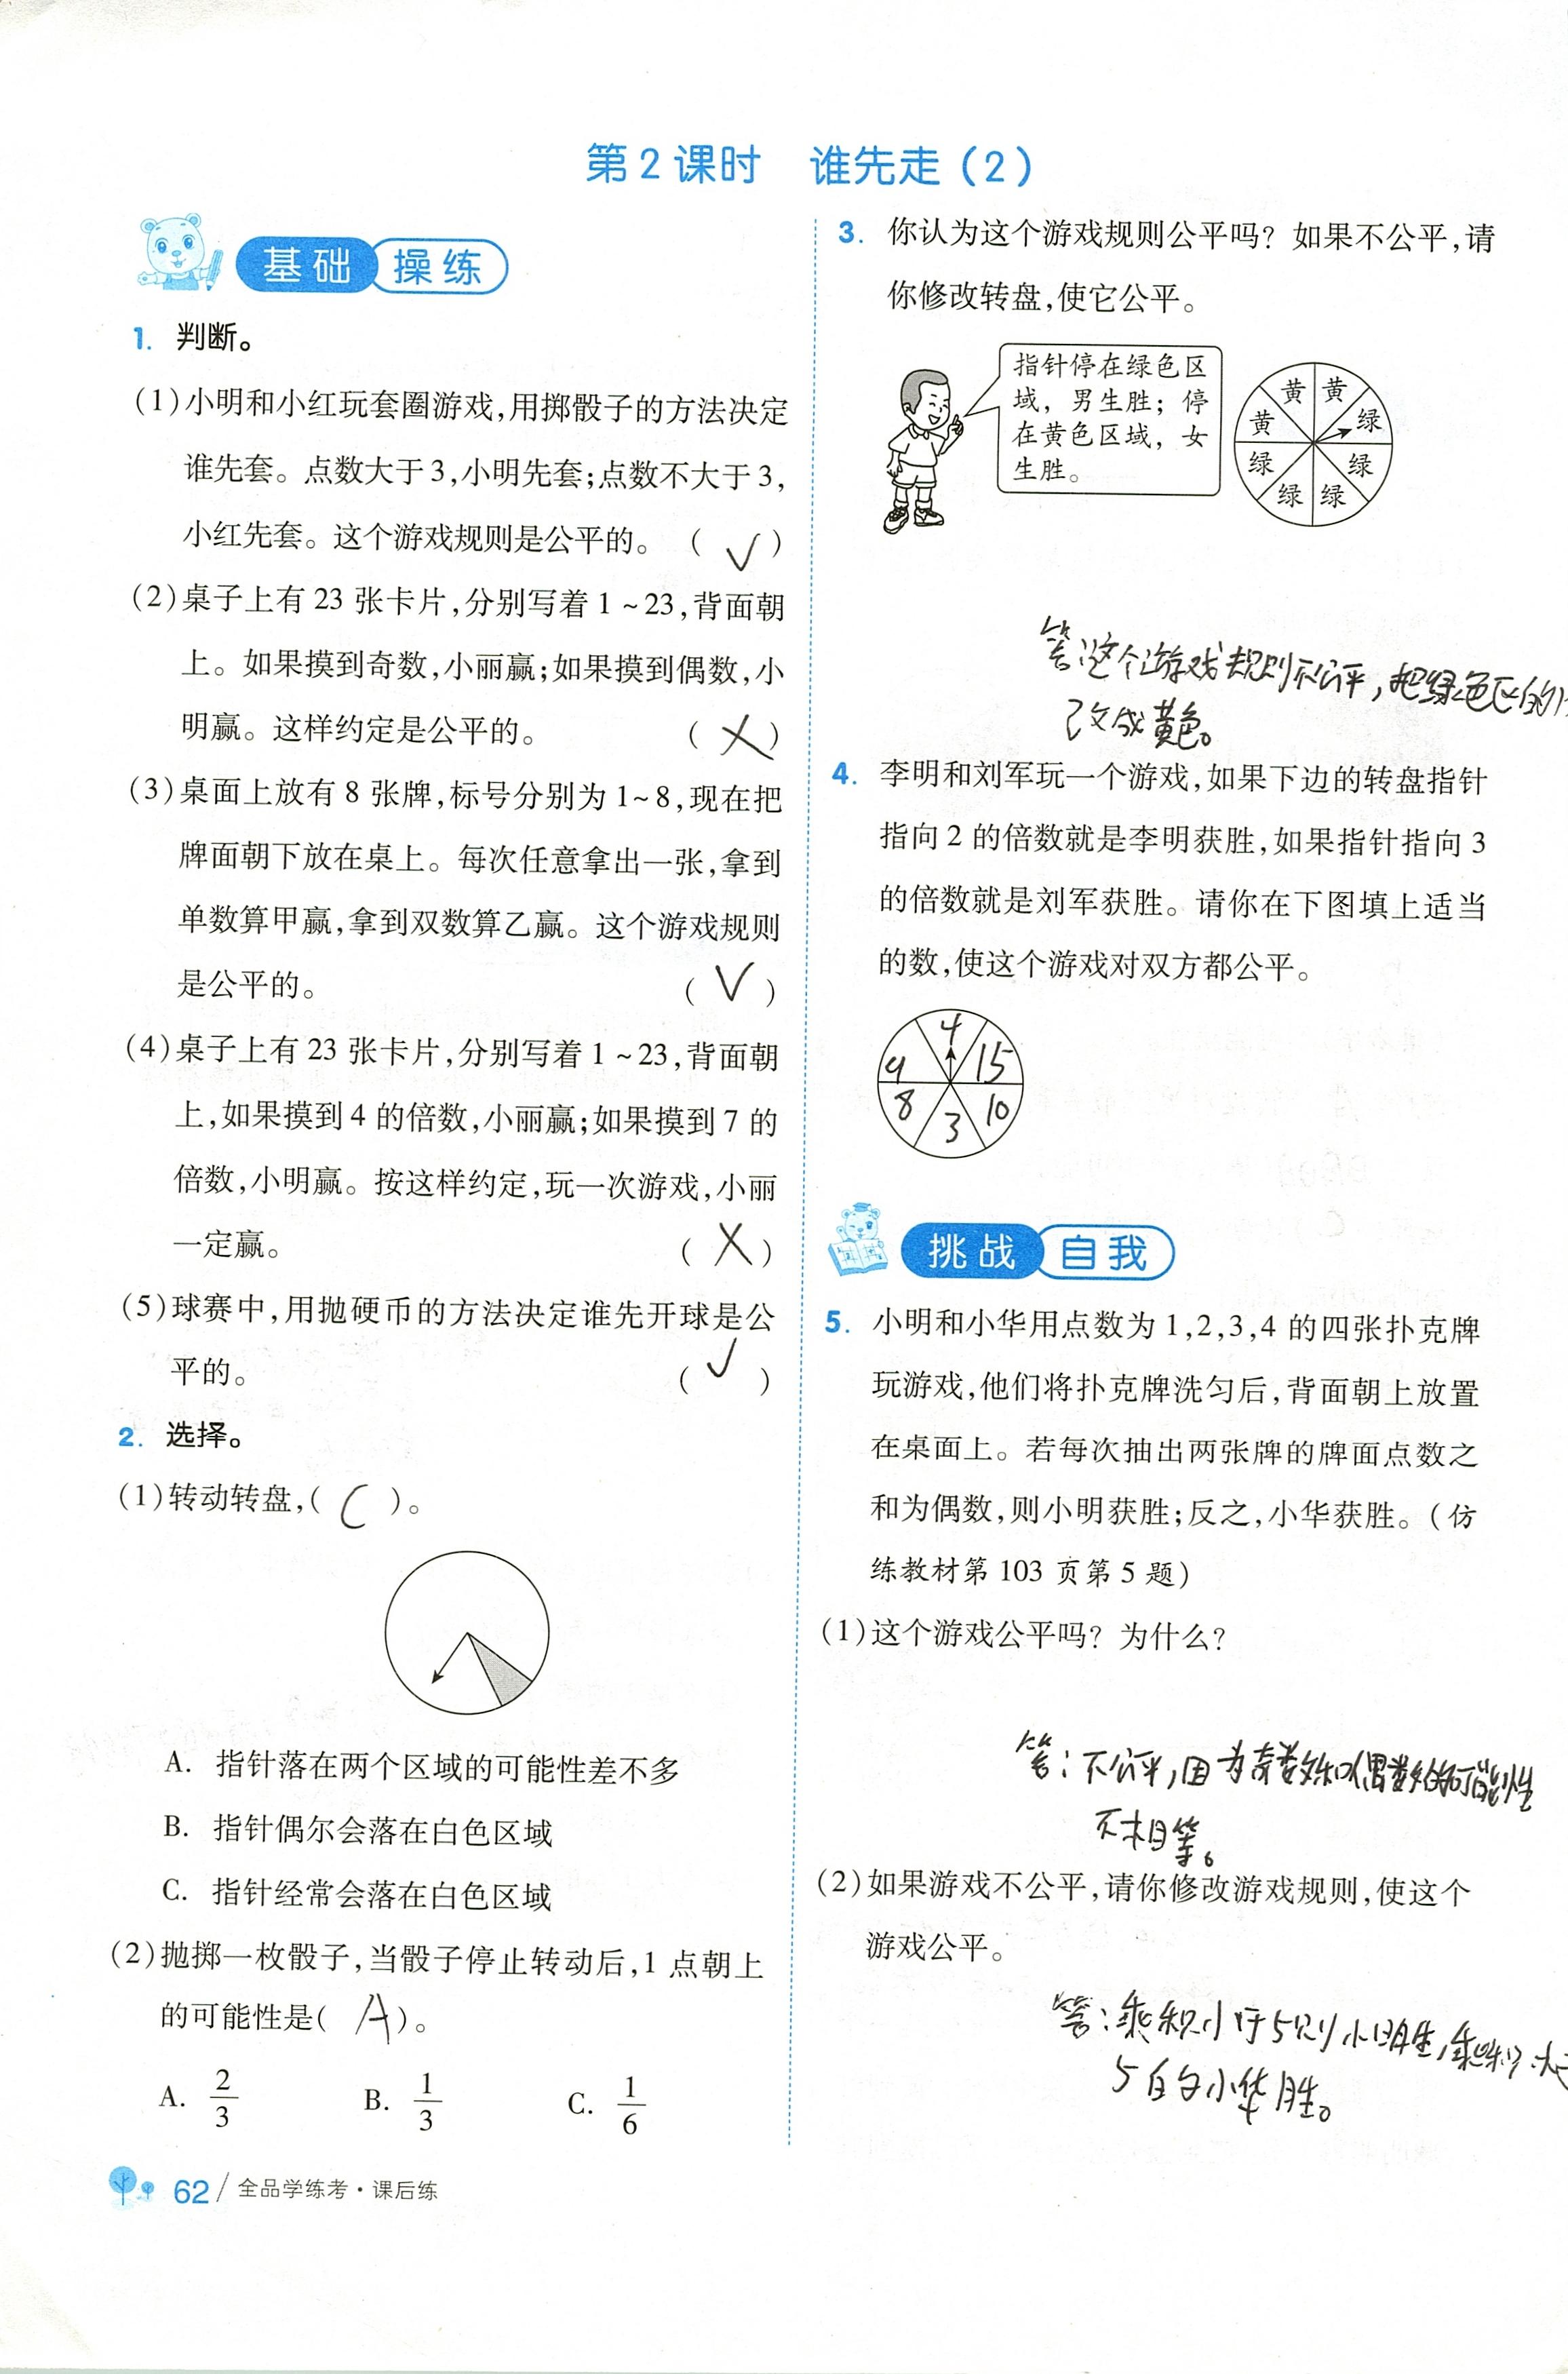 第2课时 谁先走(2)
基础 操练
1. 判断。
(1)小明和小红玩套圈游戏,用掷骰子的方法决定
谁先套。点数大于3,小明先套;点数不大于3,
小红先套。这个游戏规则是公平的。 ( √ )
(2)桌子上有23张卡片,分别写着1~23,背面朝
上。如果摸到奇数,小丽赢;如果摸到偶数,小
明赢。这样约定是公平的。 ( X )
(3)桌面上放有8张牌,标号分别为1~8,现在把
牌面朝下放在桌上。每次任意拿出一张,拿到
单数算甲赢,拿到双数算乙赢。这个游戏规则
是公平的。 ( √ )
(4)桌子上有23张卡片,分别写着1~23,背面朝
上,如果摸到4的倍数,小丽赢;如果摸到7的
倍数,小明赢。按这样约定,玩一次游戏,小丽
一定赢。 ( X )
(5)球赛中,用抛硬币的方法决定谁先开球是公
平的。 ( √ )
2. 选择。
(1)转动转盘,( C )。
A. 指针落在两个区域的可能性差不多
B. 指针偶尔会落在白色区域
C. 指针经常会落在白色区域
(2)抛掷一枚骰子,当骰子停止转动后,1点朝上
的可能性是( A )。
A. 2/3 B. 1/3 C. 1/6
62/全品学练考·课后练
3. 你认为这个游戏规则公平吗?如果不公平,请
你修改转盘,使它公平。
指针停在绿色区
域,男生胜;停
在黄色区域,女
生胜。
黄 黄
黄 绿
绿 绿
绿 绿
答:这个游戏规则不公平,把绿色区的1
改成黄色。
4. 李明和刘军玩一个游戏,如果下边的转盘指针
指向2的倍数就是李明获胜,如果指针指向3
的倍数就是刘军获胜。请你在下图填上适当
的数,使这个游戏对双方都公平。
4
9 15
8 10
3
挑战 自我
5. 小明和小华用点数为1,2,3,4的四张扑克牌
玩游戏,他们将扑克牌洗匀后,背面朝上放置
在桌面上。若每次抽出两张牌的牌面点数之
和为偶数,则小明获胜;反之,小华获胜。(仿
练教材第103页第5题)
(1)这个游戏公平吗?为什么?
答:不公平,因为奇数和偶数的可能性
不相等。
(2)如果游戏不公平,请你修改游戏规则,使这个
游戏公平。
答:乘积小于5则小明生,乘积大
5的小华胜。